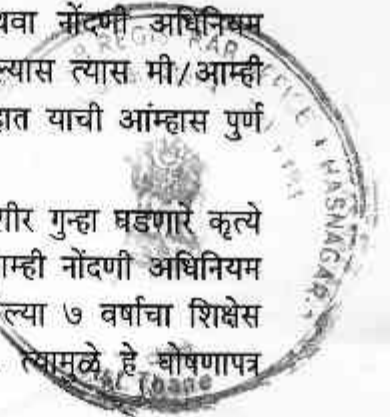 थवा नोंदणी अधिनियम
ल्यास त्यास मी/आम्ही
हात याची आंम्हास पुर्ण
शीर गुन्हा घडणारे कृत्ये
ाम्ही नोंदणी अधिनियम
ल्या ७ वर्षाचा शिक्षेस
त्यामुळे हे घोषणापत्र
REGISTRAR
HASNAGAR.
Thane